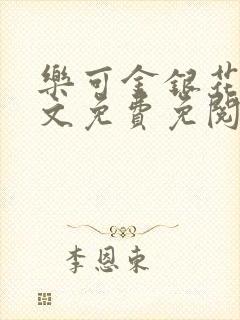 樂可金銀花
文免費免閱
李恩東